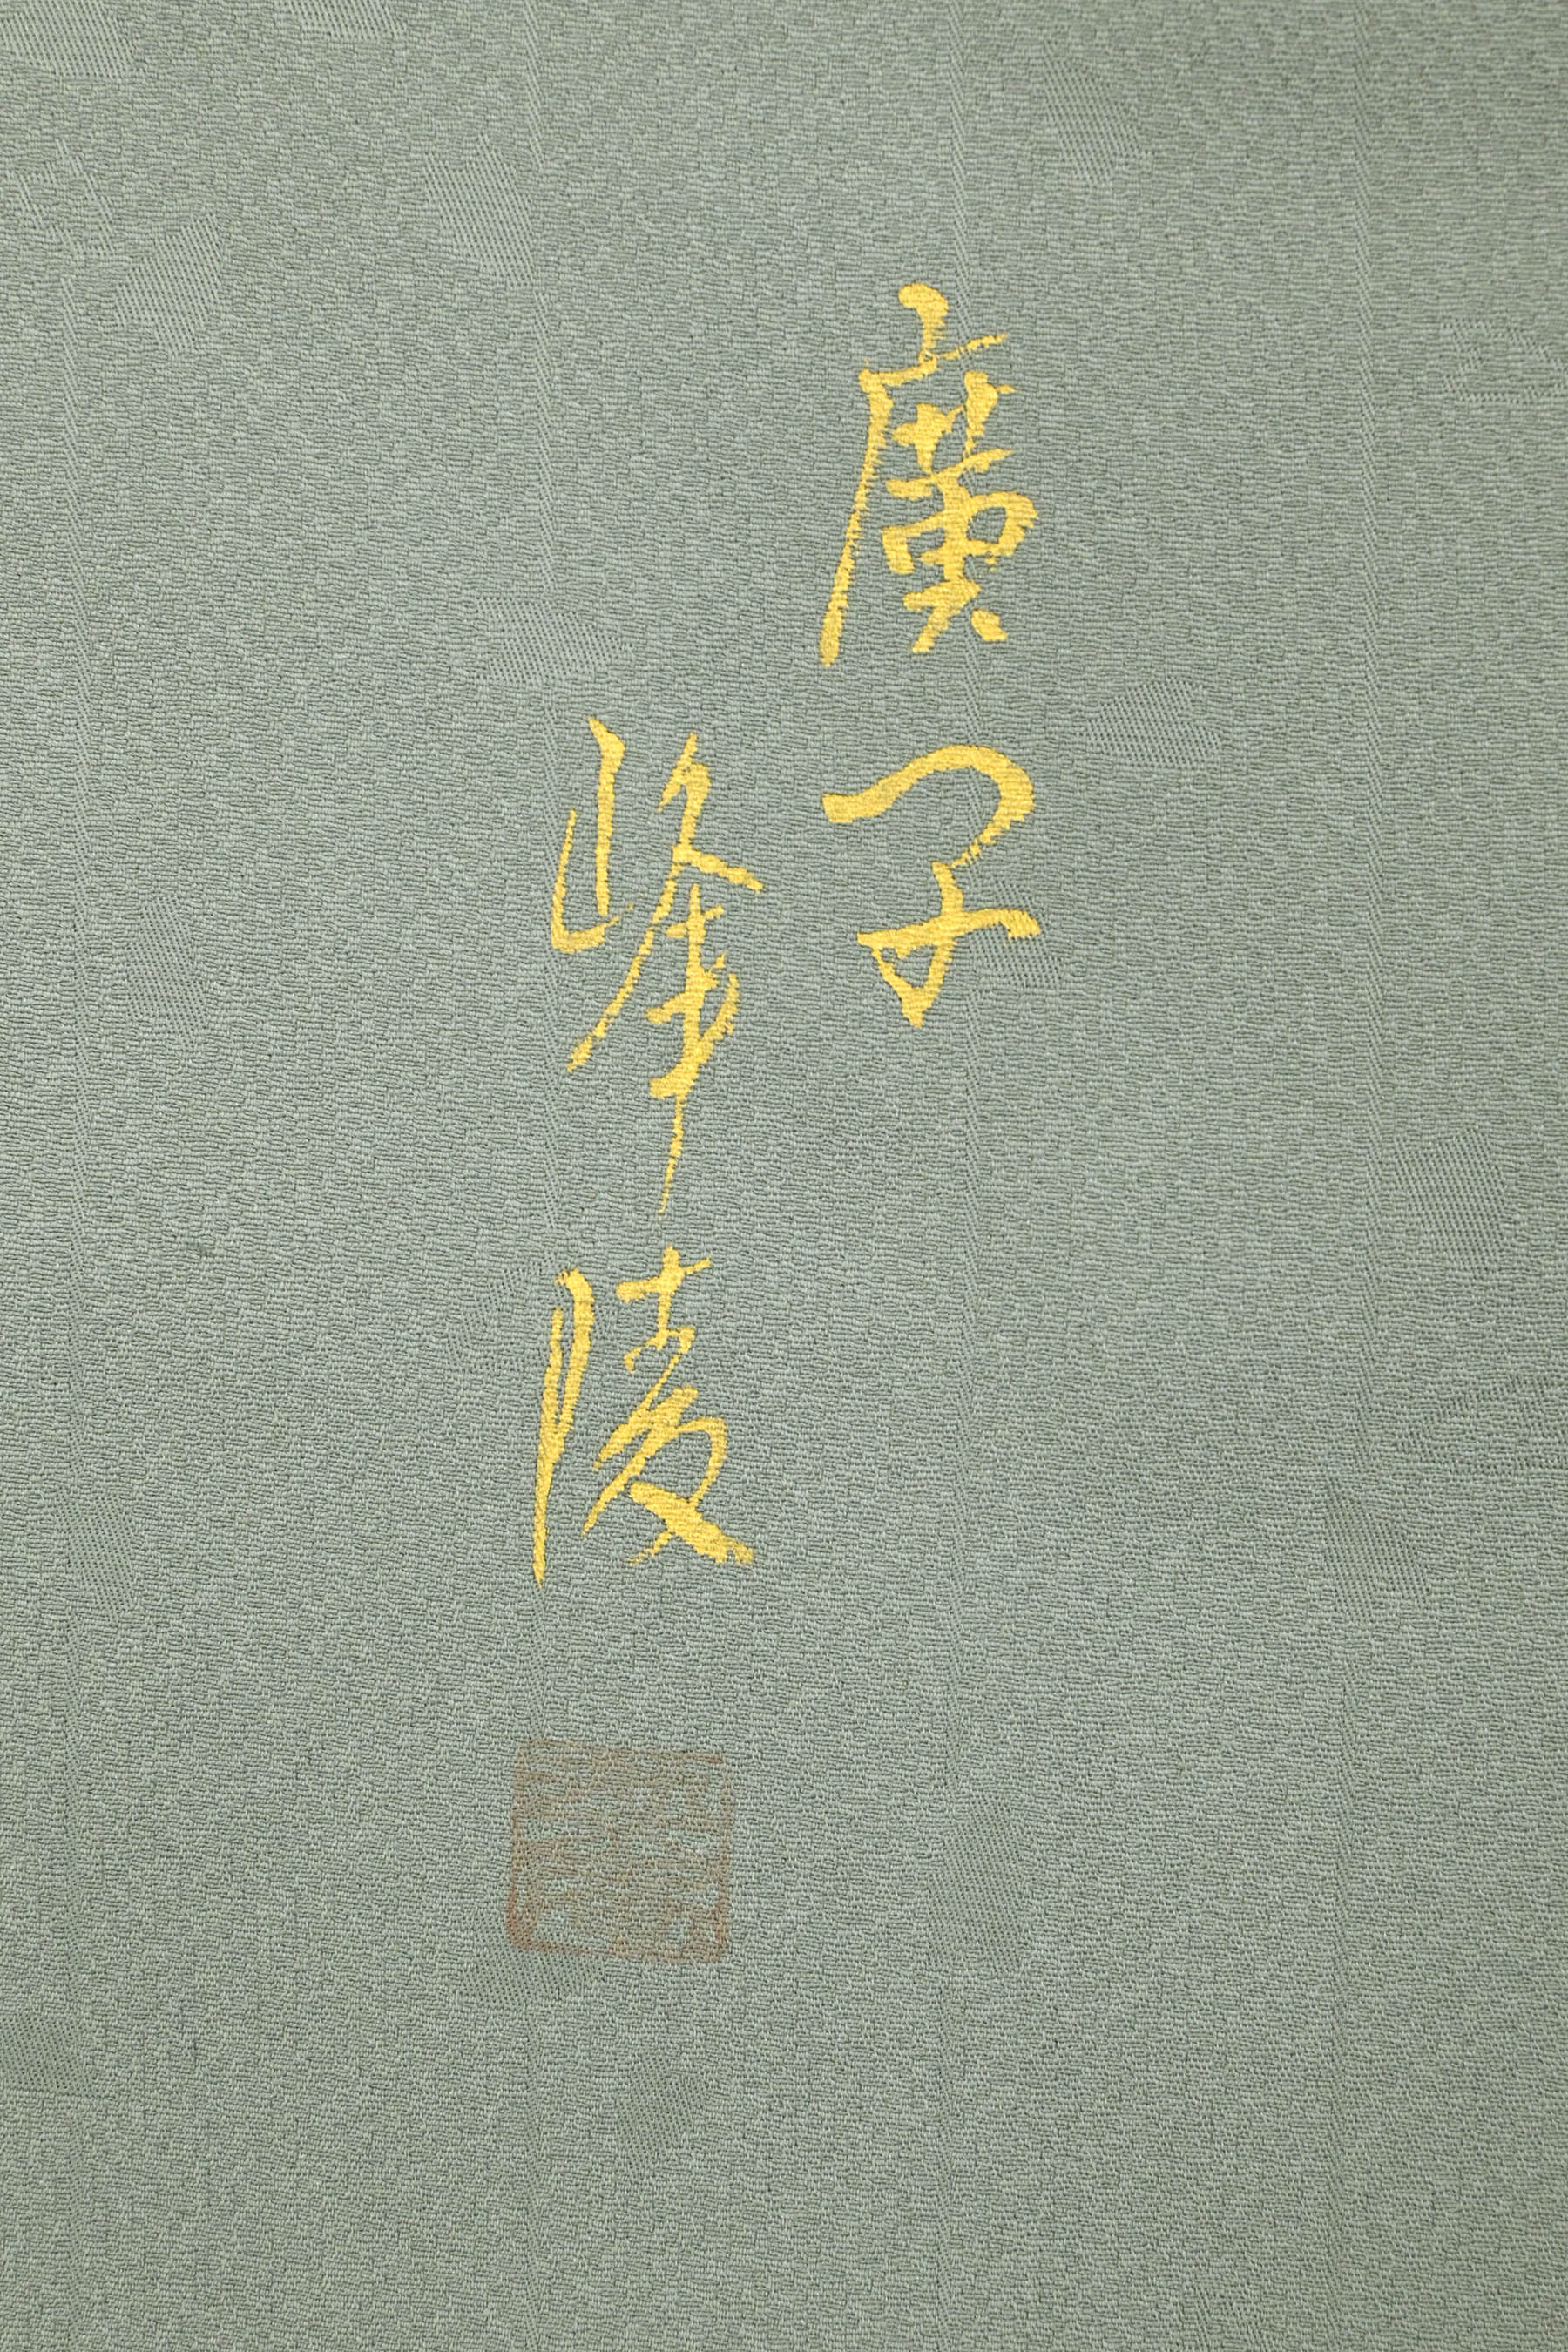 廣子
峰陵